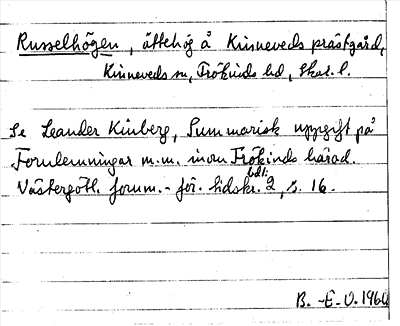 Russelhögen, ättehög å Kinneveds prästgård,
Kinneveds sn, Frökinds hd, Skar. l.
Se Leander Kinberg, Summarisk uppgift på
Fornlemningar m.m. inom Frökinds härad.
Västergötl. fornm.-för. tidskr. bd 1: 2, s. 16.
B. -E. O. 1960